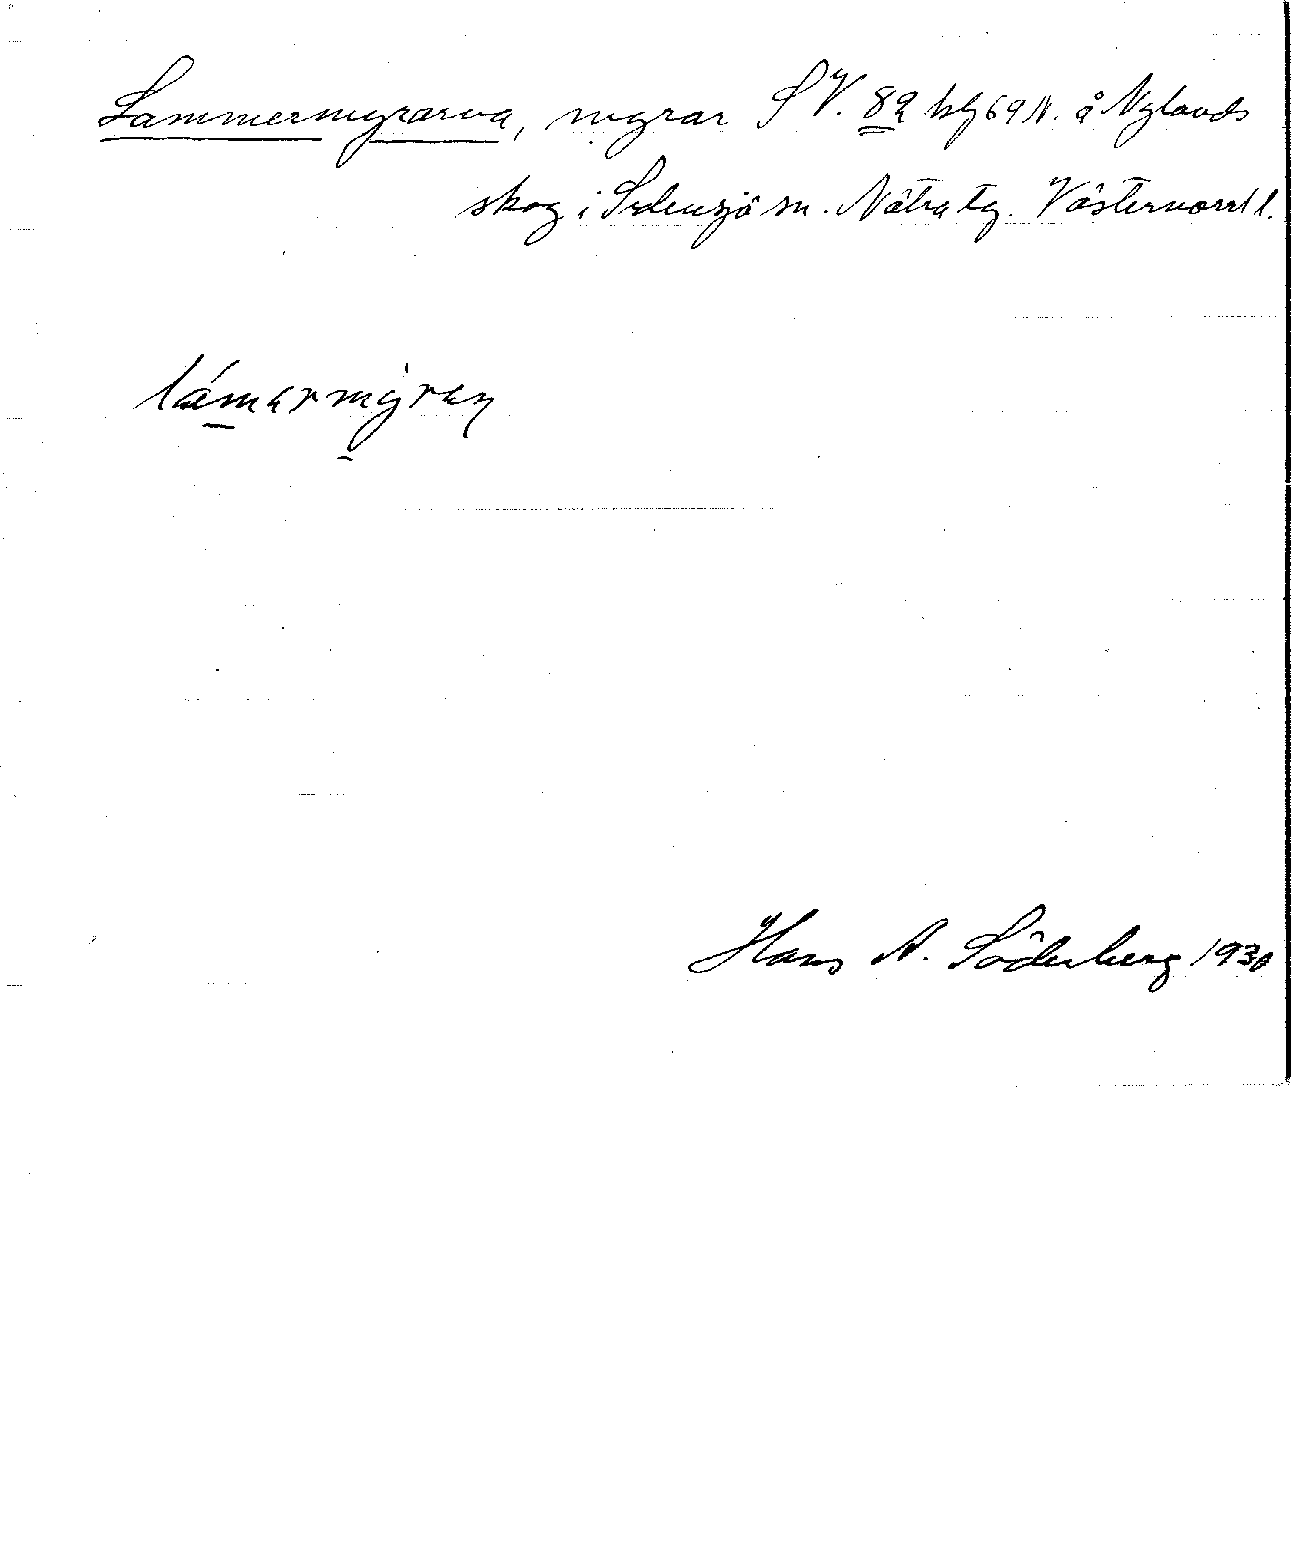 Lammermyrarna, myrar SV. 82 blg 69 N. å Nylands
skog i Sidensjö sn. Nätra tg. Västernorrl l.
lámarmýran
Hans A. Söderberg 1930